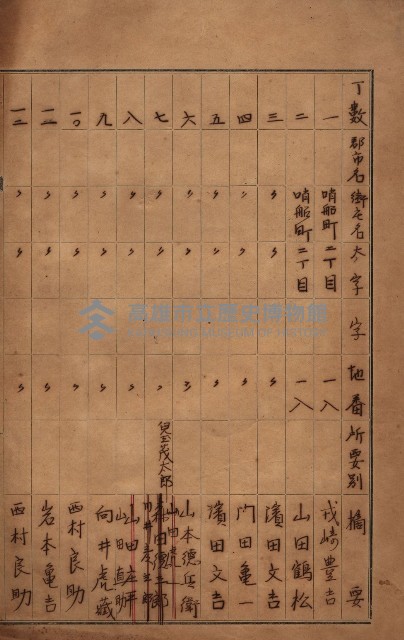 丁數 郡市名 街庄名 大字 字 地番 所要別 摘要
一 哨船町 二丁目 一八 戎崎豊吉
二 哨船町 二丁目 一八 山田鶴松
三 〃 〃 〃 濱田文吉
四 〃 〃 〃 門田亀一
五 〃 〃 〃 濱田文吉
六 〃 〃 〃 山本徳兵衛
七 〃 〃 〃 兒玉茂太郎
八 〃 〃 〃 山田真助
九 〃 〃 〃 向井虎藏
一〇 〃 〃 〃 西村良助
一一 〃 〃 〃 岩本亀吉
一二 〃 〃 〃 西村良助
高雄市立歷史博物館
KAOHSIUNG MUSEUM OF HISTORY